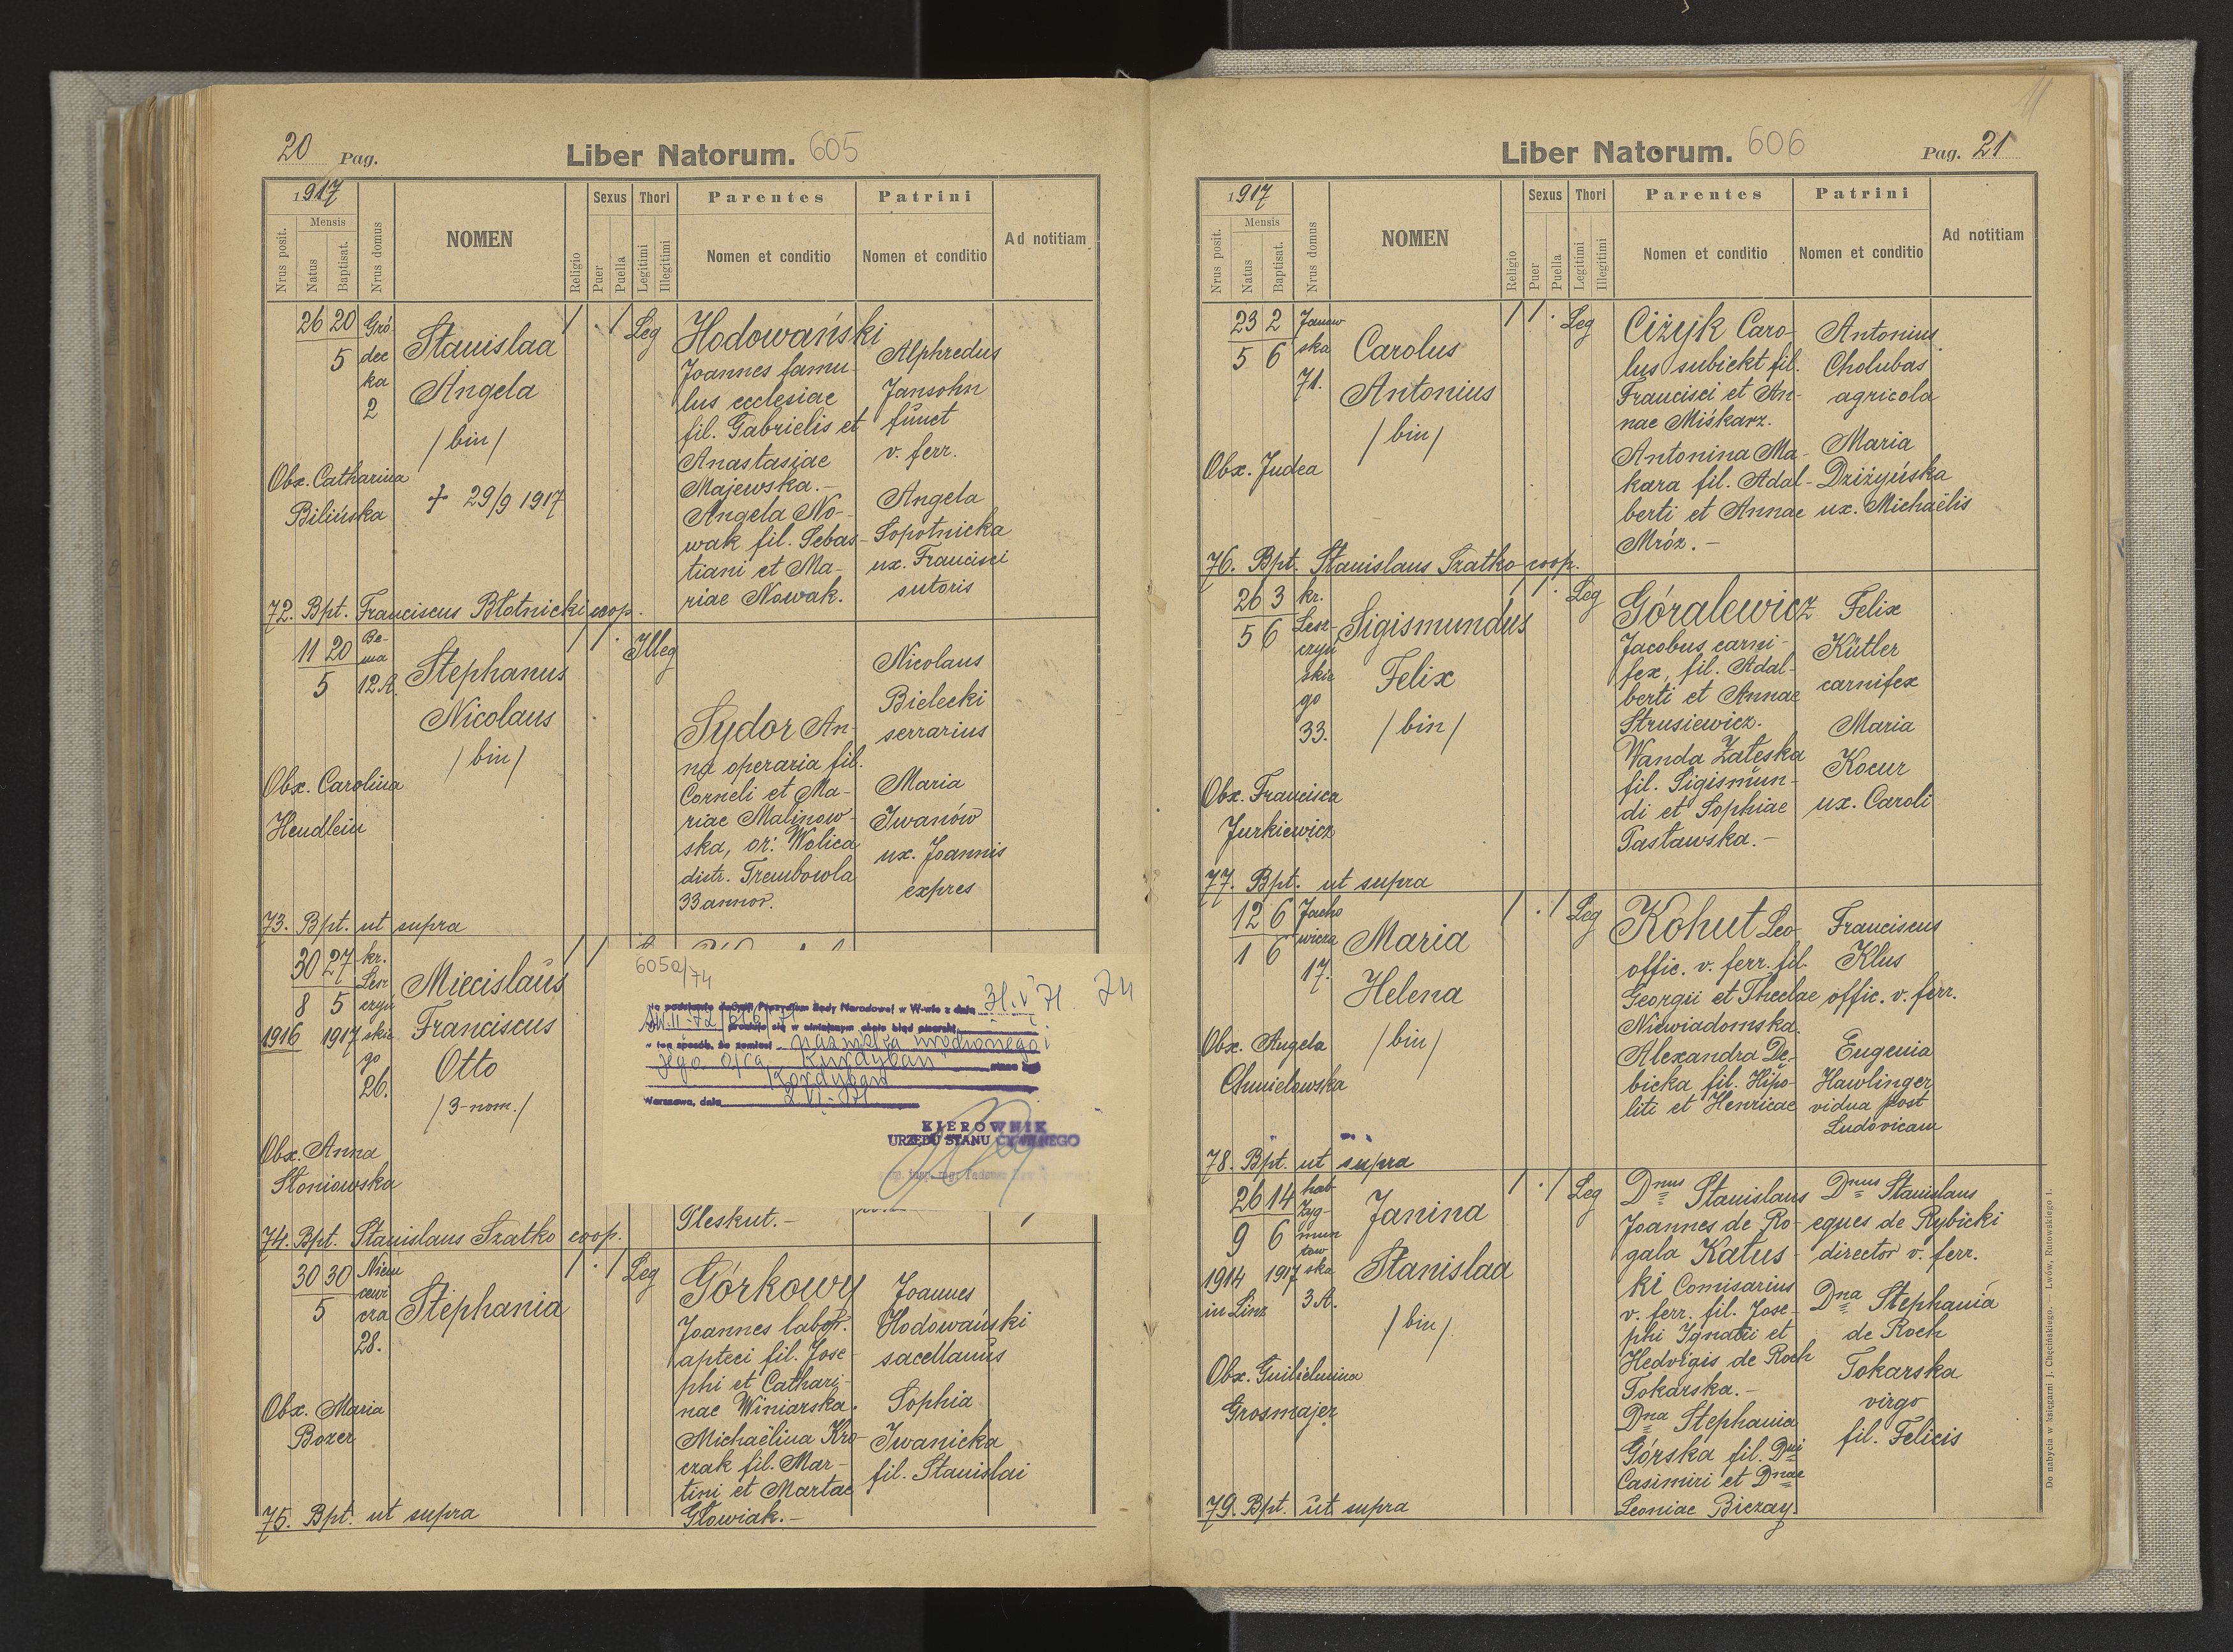 20 Pag.
Liber Natorum. 605
1917
Nrus posit.
Mensis
Natus
Baptisat.
Nrus domus
NOMEN
Religio
Sexus
Puer
Puella
Thori
Legitimi
Illegitimi
Parentes
Nomen et conditio
Patrini
Nomen et conditio
Ad notitiam
26 20
5
Gró-
dec
ka
2
Stanislaa
Angela
/bin/
+ 29/9 1917
Obx. Catharina
Bilińska
1 . 1 Leg
Hodowański
Joannes famu-
lus ecclesiae
fil. Gabrielis et
Anastasiae
Majewska.-
Angela No-
wak fil. Sebas-
tiani et Ma-
riae Nowak.
Alphredus
Jansohn
funct
v. ferr.
Angela
Sopotnicka
ux. Francisci
sutoris
72. Bpt. Franciscus Błotnicki coop.
11 20
5
Be-
ma
12A.
Stephanus
Nicolaus
/bin/
Obx. Carolina
Hendlein
1 1 . Illeg
Sydor An-
na operaria fil.
Corneli et Ma-
riae Malinow-
ska, or: Wolica
distr. Trembowla
33 annor.
Nicolaus
Bielecki
serrarius
Maria
Iwanów
ux. Joannis
expres
73. Bpt. ut supra
30 27
8 5
1916 1917
kr.
Lesz
czyń
skie
go
26.
Miecislaus
Franciscus
Otto
/3-nom./
Obx. Anna
Słoniowska
605a/74
74
Na podstawie decyzji Prezydium Rady Narodowej w W-wie z dnia 31.V 71
prostuje się w niniejszym akcie błąd pisarski
w ten sposób, że zamiast nazwiska urodzonego i
jego ojca "Kurdyban"
"Kordyban"
Warszawa, dnia 2 VI. 71
KIEROWNIK
URZĘDU STANU CYWILNEGO
Pleskut.-
74. Bpt. Stanislaus Szatko coop.
30 30
5
Niem
cewi
cza
28.
Stephania
Obx. Maria
Boxer
1 . 1 Leg
Górkowy
Joannes labor.
apteci fil. Jose-
phi et Cathari-
nae Winiarska.
Michaëlina Kro-
czak fil. Mar-
tini et Martae
Głowiak.-
Joannes
Hodowański
sacellanus
Sophia
Iwanicka
fil. Stanislai
75. Bpt. ut supra
Liber Natorum. 606
Pag. 21
1917
Nrus posit.
Mensis
Natus
Baptisat.
Nrus domus
NOMEN
Religio
Sexus
Puer
Puella
Thori
Legitimi
Illegitimi
Parentes
Nomen et conditio
Patrini
Nomen et conditio
Ad notitiam
23 2
5 6
Janow
ska
71.
Carolus
Antonius
/bin/
Obx. Judea
1 1 . Leg
Ciżyk Caro-
lus subiekt fil.
Francisci et An-
nae Miśkarz.
Antonina Ma-
kara fil. Adal-
berti et Annae
Mróz.-
Antonius
Cholubas
agricola
Maria
Dziżyńska
ux. Michaëlis
76. Bpt. Stanislaus Szatko coop.
26 3
5 6
kr.
Lesz-
czyń
skie
go
33.
Sigismundus
Felix
/bin/
Obx. Francisca
Jurkiewicz
1 1 . Leg
Góralewicz
Jacobus carni-
fex, fil. Adal-
berti et Annae
Strusiewicz.
Wanda Załęska
fil. Sigismun-
di et Sophiae
Pastawska.-
Felix
Kütler
carnifex
Maria
Kocur
ux. Caroli
77. Bpt. ut supra
12 6
1 6
Jacho
wicza
17.
Maria
Helena
/bin/
Obx. Angela
Chmielowska
1 . 1 Leg
Kohut Leo
offic. v. ferr. fil.
Georgii et Theclae
Niewiadomska.
Alexandra De-
bicka fil. Hipo-
liti et Henricae
Franciscus
Klus
offic. v. ferr.
Eugenia
Hawlinger
vidua post
Ludovicum
78. Bpt. ut supra
26 14
9 6
1914 1917
in Linz
hab
Zyg-
mun
tow
ska
3A.
Janina
Stanislaa
/bin/
Obx. Guilielmina
Grosmajer
1 . 1 Leg
Dnus Stanislaus
Joannes de Ro-
gala Katus-
ki Comisarius
v. ferr. fil. Jose-
phi Ignatii et
Hedvigis de Roch
Tokarska.-
Dna Stephania
Górska fil. Dni
Casimiri et Dnae
Leoniae Biczay.
Dnus Stanislaus
eques de Rybicki
director v. ferr.
Dna Stephania
de Roch
Tokarska
virgo
fil. Felicis
79. Bpt. ut supra
310
Do nabycia w księgarni J. Chęcińskiego. — Lwów, Rutowskiego 1.